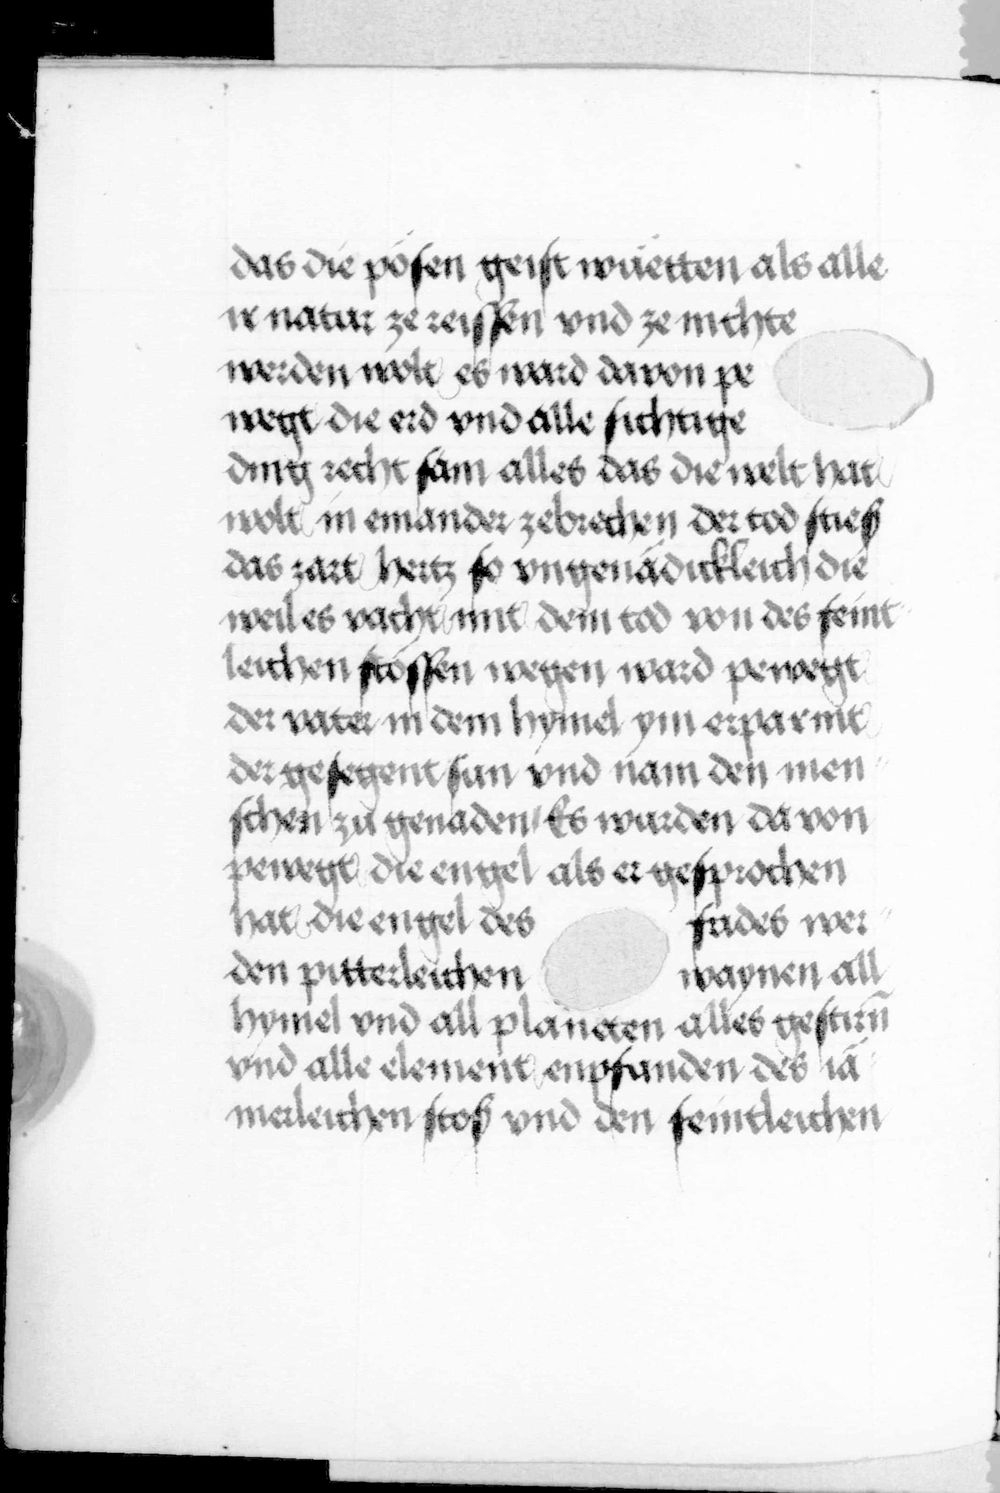 das die pösen geist wüetten als alle
ir natur ze reissen vnd ze nichte
werden wolt es ward davon pe
wegt die erd vnd alle sichtige
ding recht sam alles das die welt hat
wolt in einander zebrechen der tod stieß
das zart hertz so vngenädickleich die
weil es vacht mit dem tod von des feint
leichen stössen wegen ward pewegt
der vater in dem hymel ym erparmt
der gesegent sun vnd nam den men
schen zu genaden Es wurden da von
pewegt die engel als er gesprochen
hat die engel des frides wer
den pitterleichen waynen all
hymel vnd all planeten alles gestirn̄
vnd alle element enpfunden des iä
merleichen stoß vnd den feintleichen